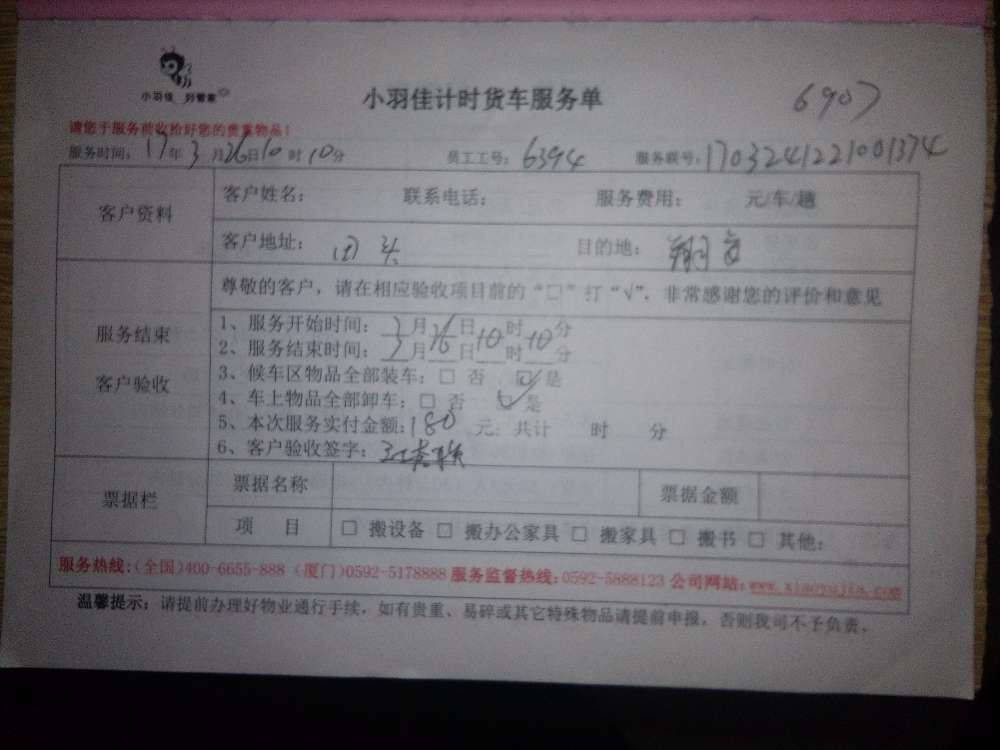 小羽佳 好管家
小羽佳计时货车服务单
6907
请您于服务前收拾好您的贵重物品!
服务时间:17年3月26日10时10分 员工工号:6394 服务联号:1703241221001374
客户资料
客户姓名: 联系电话: 服务费用: 元/车/趟
客户地址: 田头 目的地:
服务结束
客户验收
尊敬的客户,请在相应验收项目前的“□”打“√”,非常感谢您的评价和意见
1、服务开始时间:3月26日10时10分
2、服务结束时间:3月 日 时 分
3、候车区物品全部装车:□ 否 ☑ 是
4、车上物品全部卸车:□ 否 ☑ 是
5、本次服务实付金额:180 元;共计 时 分
6、客户验收签字:
票据栏
票据名称 票据金额
项 目 □ 搬设备 □ 搬办公家具 □ 搬家具 □ 搬书 □ 其他:
服务热线:(全国)400-6655-888 (厦门)0592-5178888 服务监督热线:0592-5888123 公司网站:www.xiaoyujia.com
温馨提示:请提前办理好物业通行手续,如有贵重、易碎或其它特殊物品请提前申报,否则我司不予负责。